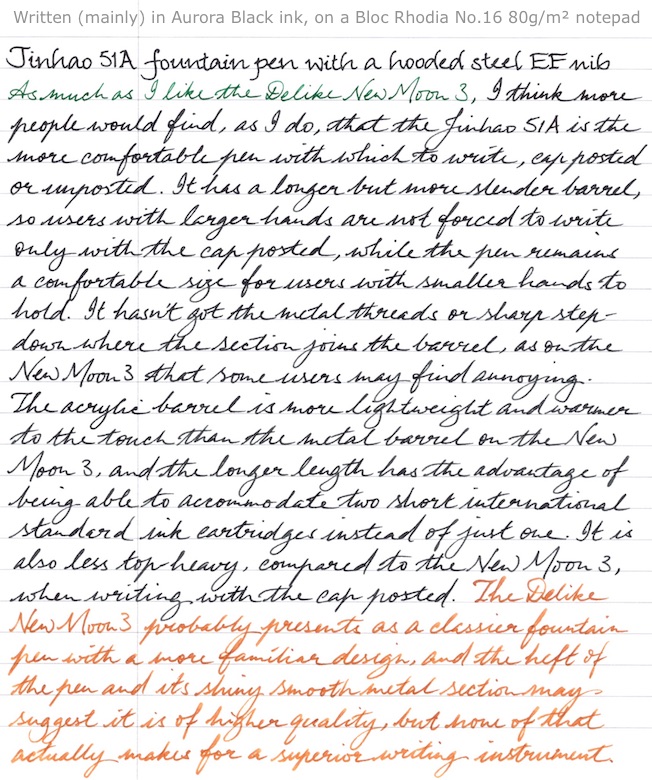 Written (mainly) in Aurora Black ink, on a Bloc Rhodia No.16 80g/m² notepad
Jinhao 51A fountain pen with a hooded steel EF nib
As much as I like the Delike New Moon 3, I think more
people would find, as I do, that the Jinhao 51A is the
more comfortable pen with which to write, cap posted
or unposted. It has a longer but more slender barrel,
so users with larger hands are not forced to write
only with the cap posted, while the pen remains
a comfortable size for users with smaller hands to
hold. It hasn't got the metal threads or sharp step-
down where the section joins the barrel, as on the
New Moon 3 that some users may find annoying.
The acrylic barrel is more lightweight and warmer
to the touch than the metal barrel on the New
Moon 3, and the longer length has the advantage of
being able to accommodate two short international
standard ink cartridges instead of just one. It is
also less top-heavy, compared to the New Moon 3,
when writing with the cap posted. The Delike
New Moon 3 probably presents as a classier fountain
pen with a more familiar design, and the heft of
the pen and its shiny smooth metal section may
suggest it is of higher quality, but none of that
actually makes for a superior writing instrument.